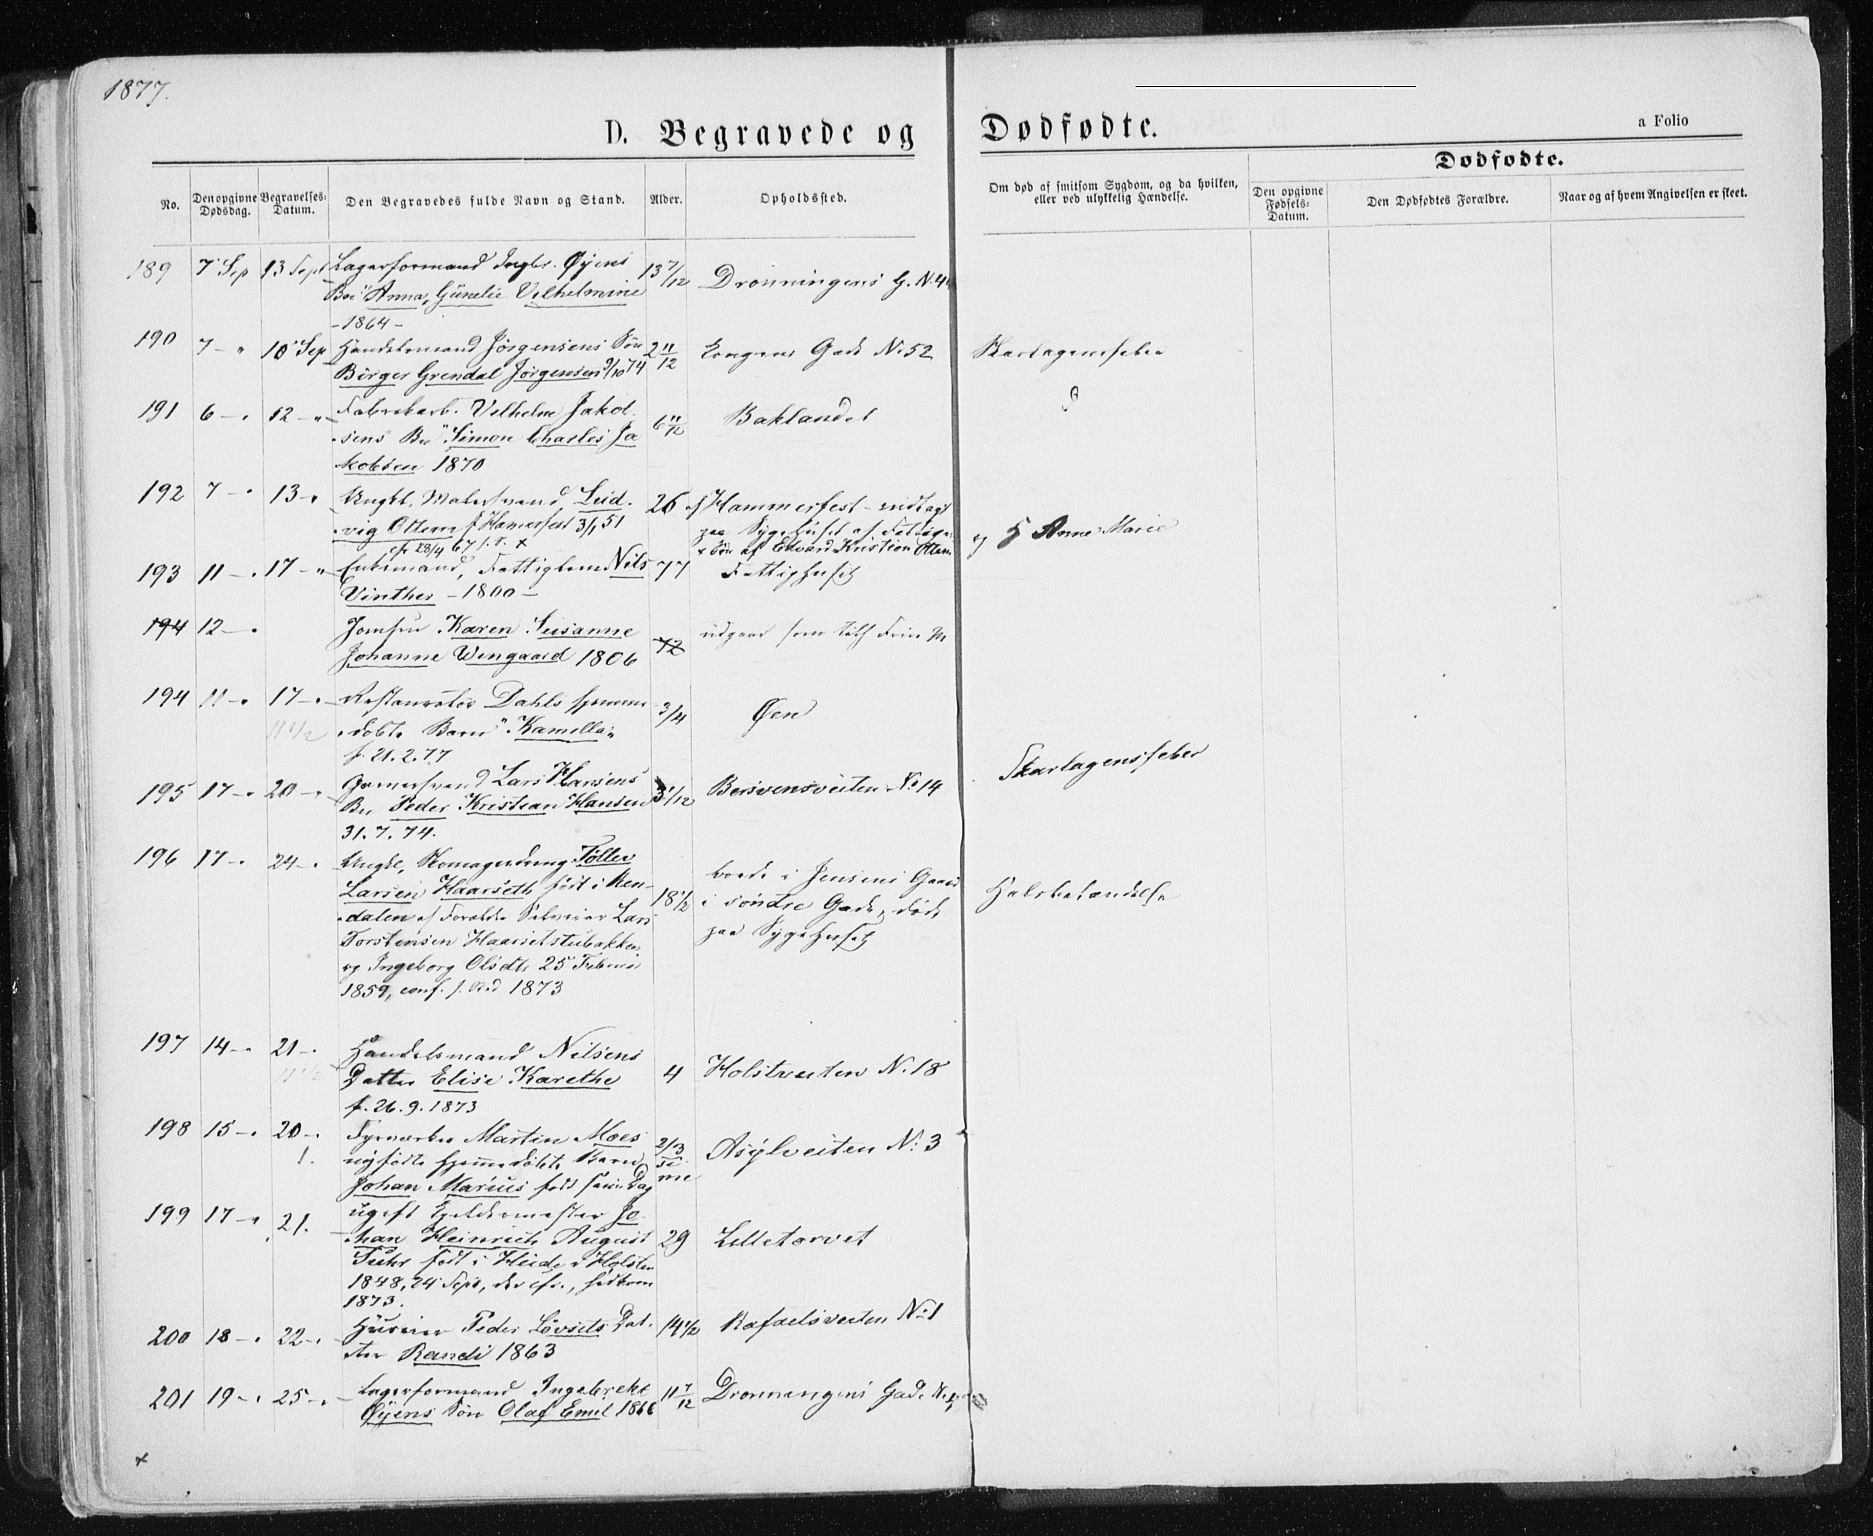 1877.
D. Begravede og Dødfødte.
a Folio
Dødfødte.
No.
Den opgivne Dødsdag.
Begravelses-Datum.
Den Begravedes fulde Navn og Stand.
Alder.
Opholdssted.
Om død af smitsom Sygdom, og da hvilken,
eller ved ulykkelig Hændelse.
Den opgivne Fødsels-Datum.
Den Dødfødtes Forældre.
Naar og af hvem Angivelsen er skeet.
189 7 Sep 13 Sept Lagerformand Ingbr. Øyens 13 7/12 Dronningens G. N. 4
Bn Anna Gunelie Vilhelmine
- 1864 -
190 7 - " 10 Sep Handelsmand Jörgensens Sön 2 11/12 Kongens Gade No 52 Skarlagensfeber
Birger Grendal Jörgensen 9/10 74
191 6 - " 12 - " Fabrikarb. Vilhelm Jakob- 6 11/12 Baklandet
sens Bn Simon Charles Ja
kobsen 1870
192 7 - " 13 - " Ungkl. Malersvend Lud- 26 Hammerfest - indlagt
vig Ottem f. Hamerfest 3/1 51 paa Sygehuset af
cfr 28/4 67 x Sön af Edvard Kristian Ottem og Anne Marie
193 11 - " 17 - " Enkemand, Fattiglem Nils 77 Fattighuset
Vinther - 1800 -
194 12 - " Jomfru Karen Susanne 72 udgaar som
Johanne Wengaard 1806
194 11 - " 17 - " Restauratör Dahls hjemme- 3/4 Øen
11 1/2 döbte Barn "Kamilla"
f. 21.2.77
195 17 - " 20 - " Garversvend Lars Hansens 3 1/12 Bersvensveiten No 14 Skarlagensfeber
Bn Peder Kristian Hansen
31.7.74.
196 17 - " 24 - " Ungkl, Tollev
Larsen Haarseth født i Ren- 18 1/2 boede i Jensens Gaard Halsbetændelse
dalen af Forældre Selveier Lars i söndre Gade, döde
Torstensen Haarsetstubakken paa Sygehuset
og Ingeborg Olsdtr 25 Februar
1859, conf. 1873
197 14 - " 21 - Handelsmand Nilsens
Datter Elise Karethe 4 Holstveiten N. 18
f. 26.9.1873
198 15 - " 20 - Fyrværker Martin Moes 2/3 Asylveiten No 3
nyfödte hjemmedöbte Barn Ti
Johan Marius født samme Dag me
199 17 - " 21. ugift Kjeldermester Jo-
han Heinrich August 29 Lilletorvet
Suhr født i Heide i Holsten
1848, 24 Sept,
1873.
200 18 - " 22 - " Huseier Peder Lövsets Dat- 14 1/2 Rafaelsveiten No 1
ter Randi 1863
201 19 - " 25 - " Lagerformand Ingebrekt 11 7/12 Dronningens Gade
Øyens Sön Olaf Emil 1866
x